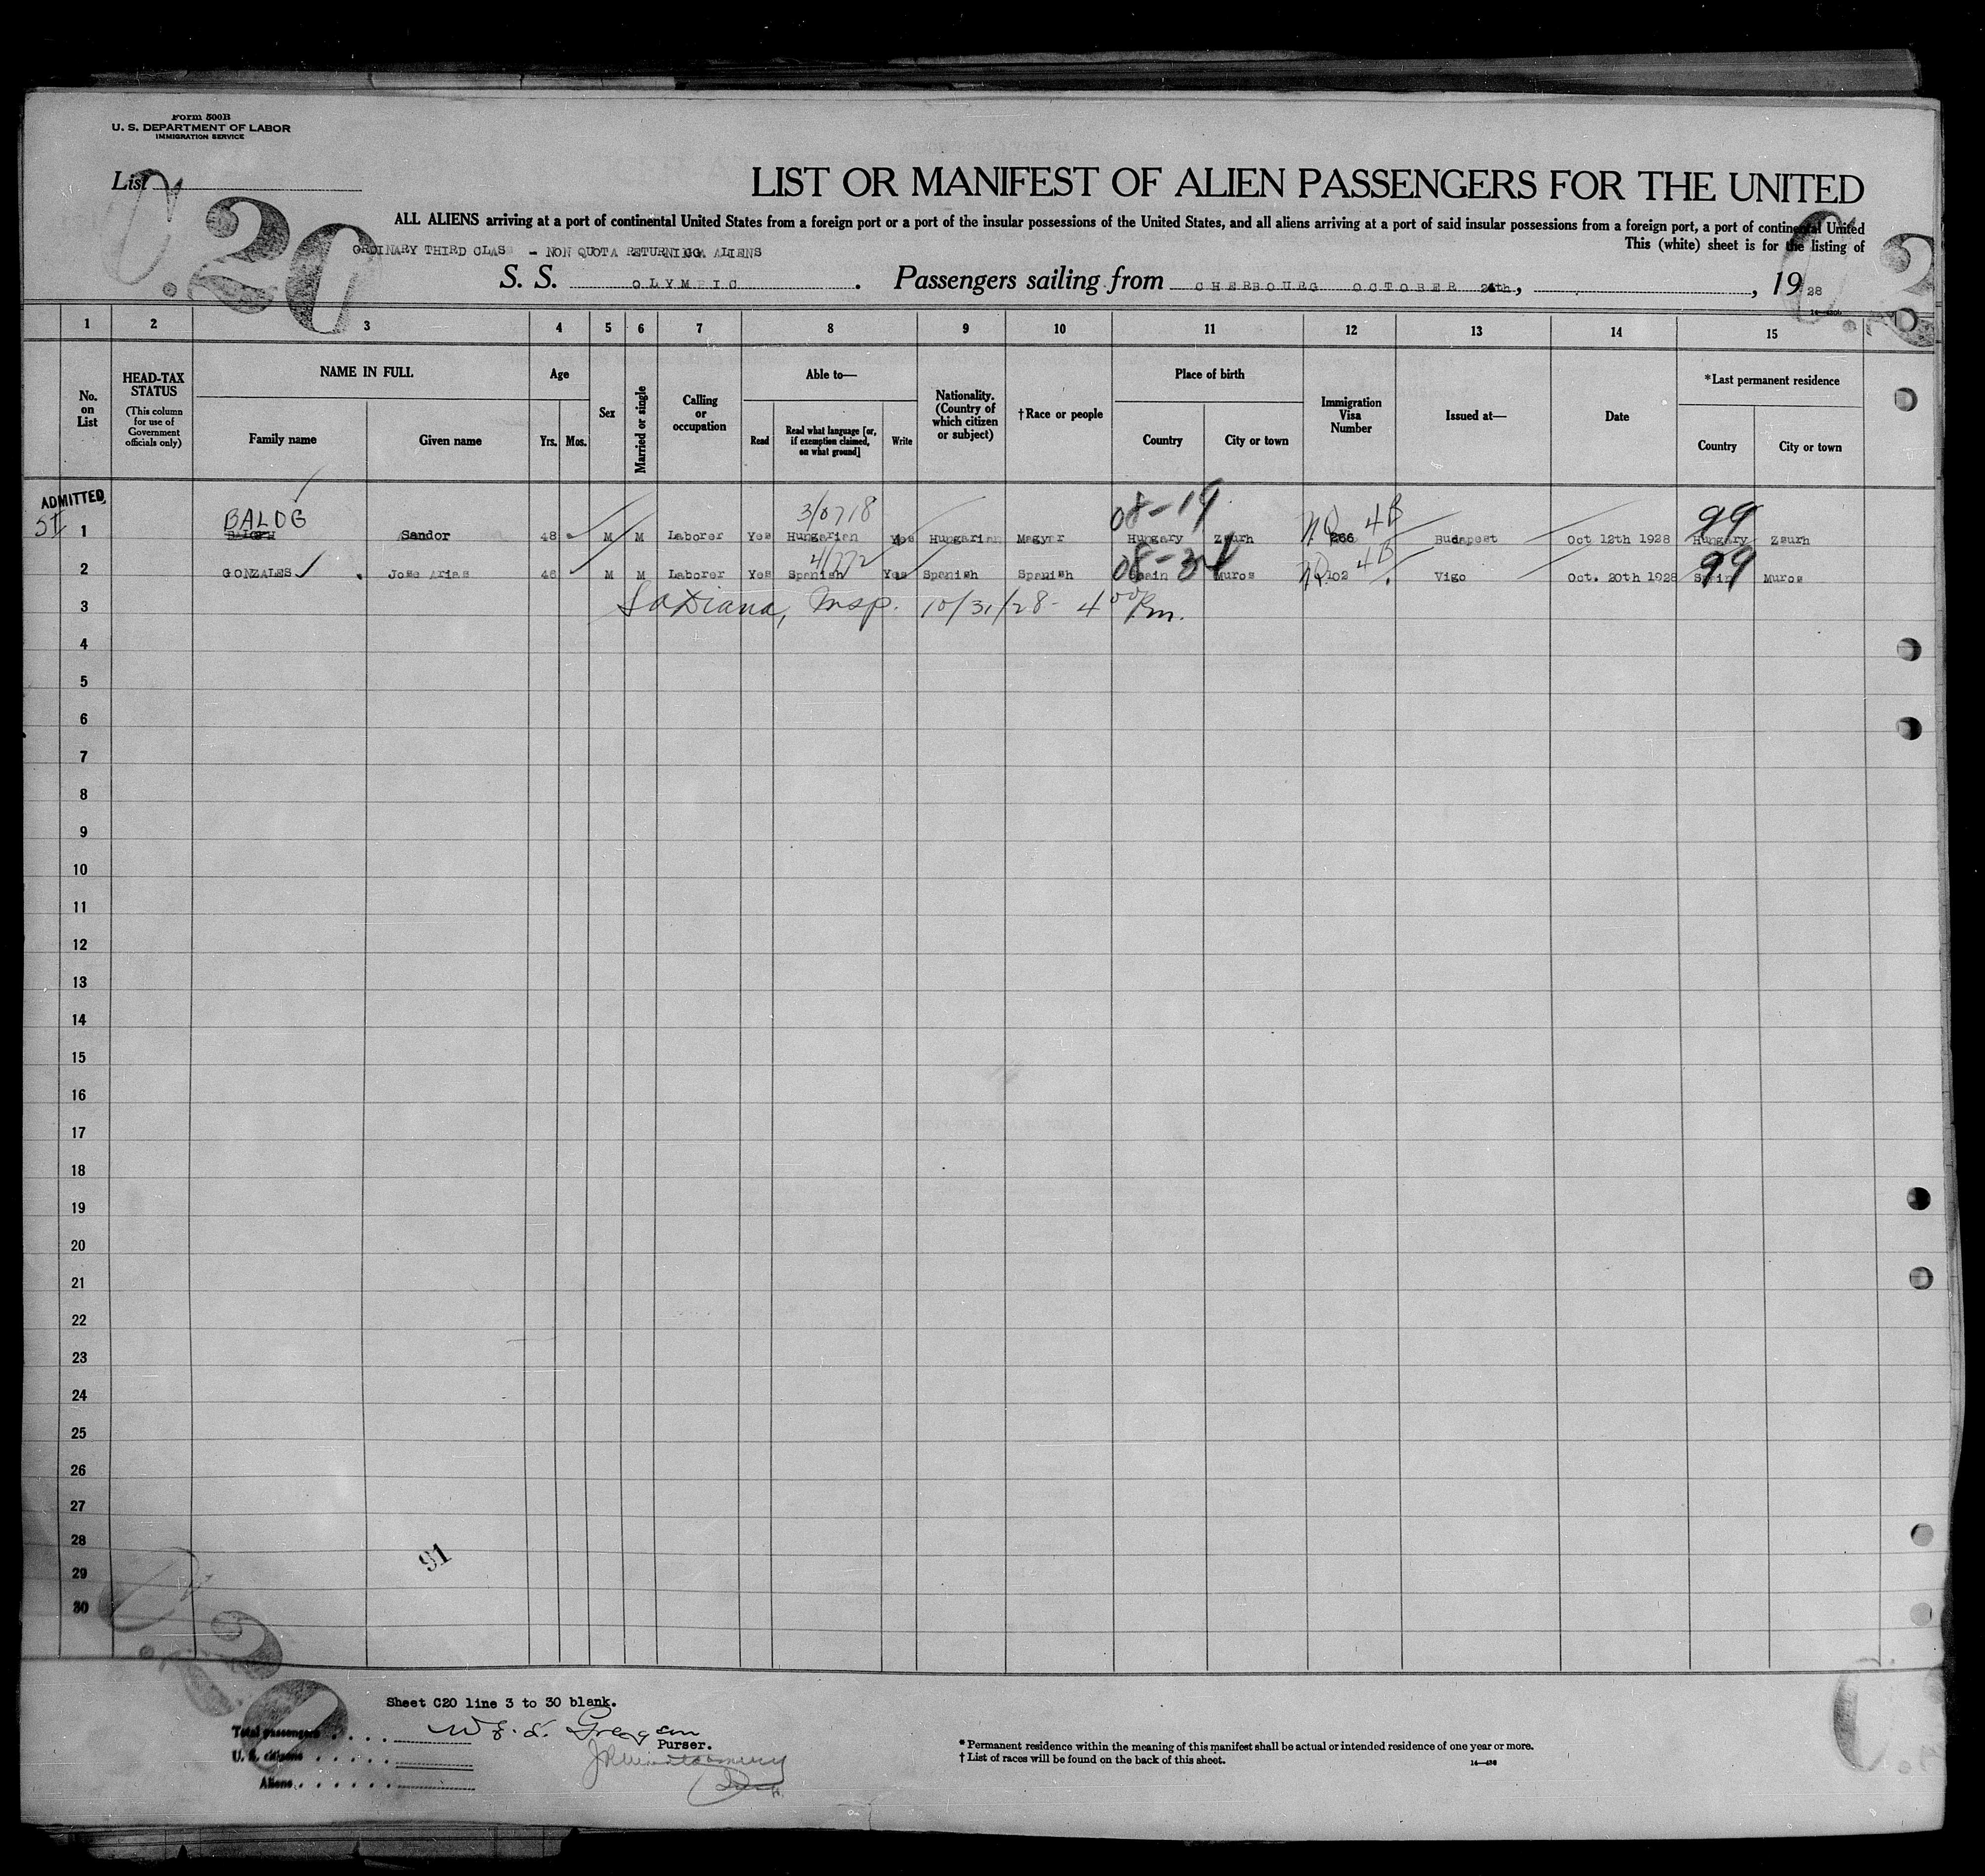 Form 500B
U. S. DEPARTMENT OF LABOR
IMMIGRATION SERVICE
List
C.20
LIST OR MANIFEST OF ALIEN PASSENGERS FOR THE UNITED
ALL ALIENS arriving at a port of continental United States from a foreign port or a port of the insular possessions of the United States, and all aliens arriving at a port of said insular possessions from a foreign port, a port of continental United
This (white) sheet is for the listing of
ORDINARY THIRD CLASS - NON QUOTA RETURNING ALIENS
S. S. OLYMPIC . Passengers sailing from CHERBOURG OCTOBER 24th, , 1928
14—430b
1 2 3 4 5 6 7 8 9 10 11 12 13 14 15
No. on List
HEAD-TAX STATUS
(This column for use of Government officials only)
NAME IN FULL
Family name Given name
Age
Yrs. Mos.
Sex
Married or single
Calling or occupation
Able to—
Read
Read what language [or, if exemption claimed, on what ground]
Write
Nationality. (Country of which citizen or subject)
†Race or people
Place of birth
Country City or town
Immigration Visa Number
Issued at—
Date
*Last permanent residence
Country City or town
ADMITTED
BALOG 3/0718 08-19 NQ 4B 99
1 Sandor 48 M M Laborer Yes Hungarian Yes Hungarian Magyar Hungary Zsurh 266 Budapest Oct 12th 1928 Hungary Zsurh
4/772 08-3 NQ 4B 99
2 GONZALES Jose Arias 46 M M Laborer Yes Spanish Yes Spanish Spanish Spain Muros 102 Vigo Oct. 20th 1928 Spain Muros
3 LaDiana, Insp. 10/31/28 - 4 00 P.m.
4
5
6
7
8
9
10
11
12
13
14
15
16
17
18
19
20
21
22
23
24
25
26
27
28
29
30
91
Sheet C20 line 3 to 30 blank.
Total passengers
U. S. citizens
Aliens
Purser.
* Permanent residence within the meaning of this manifest shall be actual or intended residence of one year or more.
† List of races will be found on the back of this sheet.
14—430